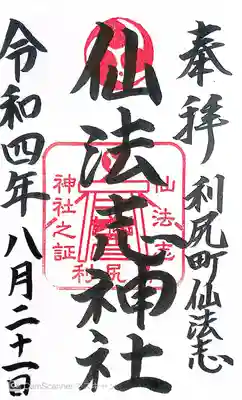 奉拝
利尻町仙法志
仙法志神社
令和四年八月二十一日
仙法志
利尻
神社之証
CamScanner